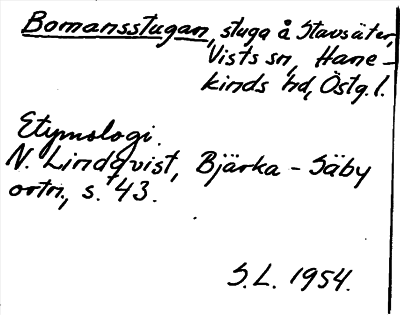 Bomansstugan, stuga å Stavsäter,
Vists sn, Hane-
kinds hd, Östg. l.
Etymologi.
N. Lindqvist, Bjärka-Säby
ortn., s. 43.
S.L. 1954.